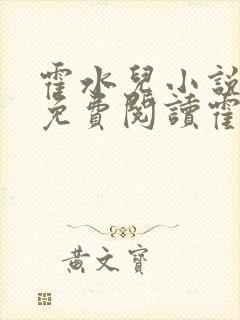 霍水兒小說
免費閱讀霍
黃文寶